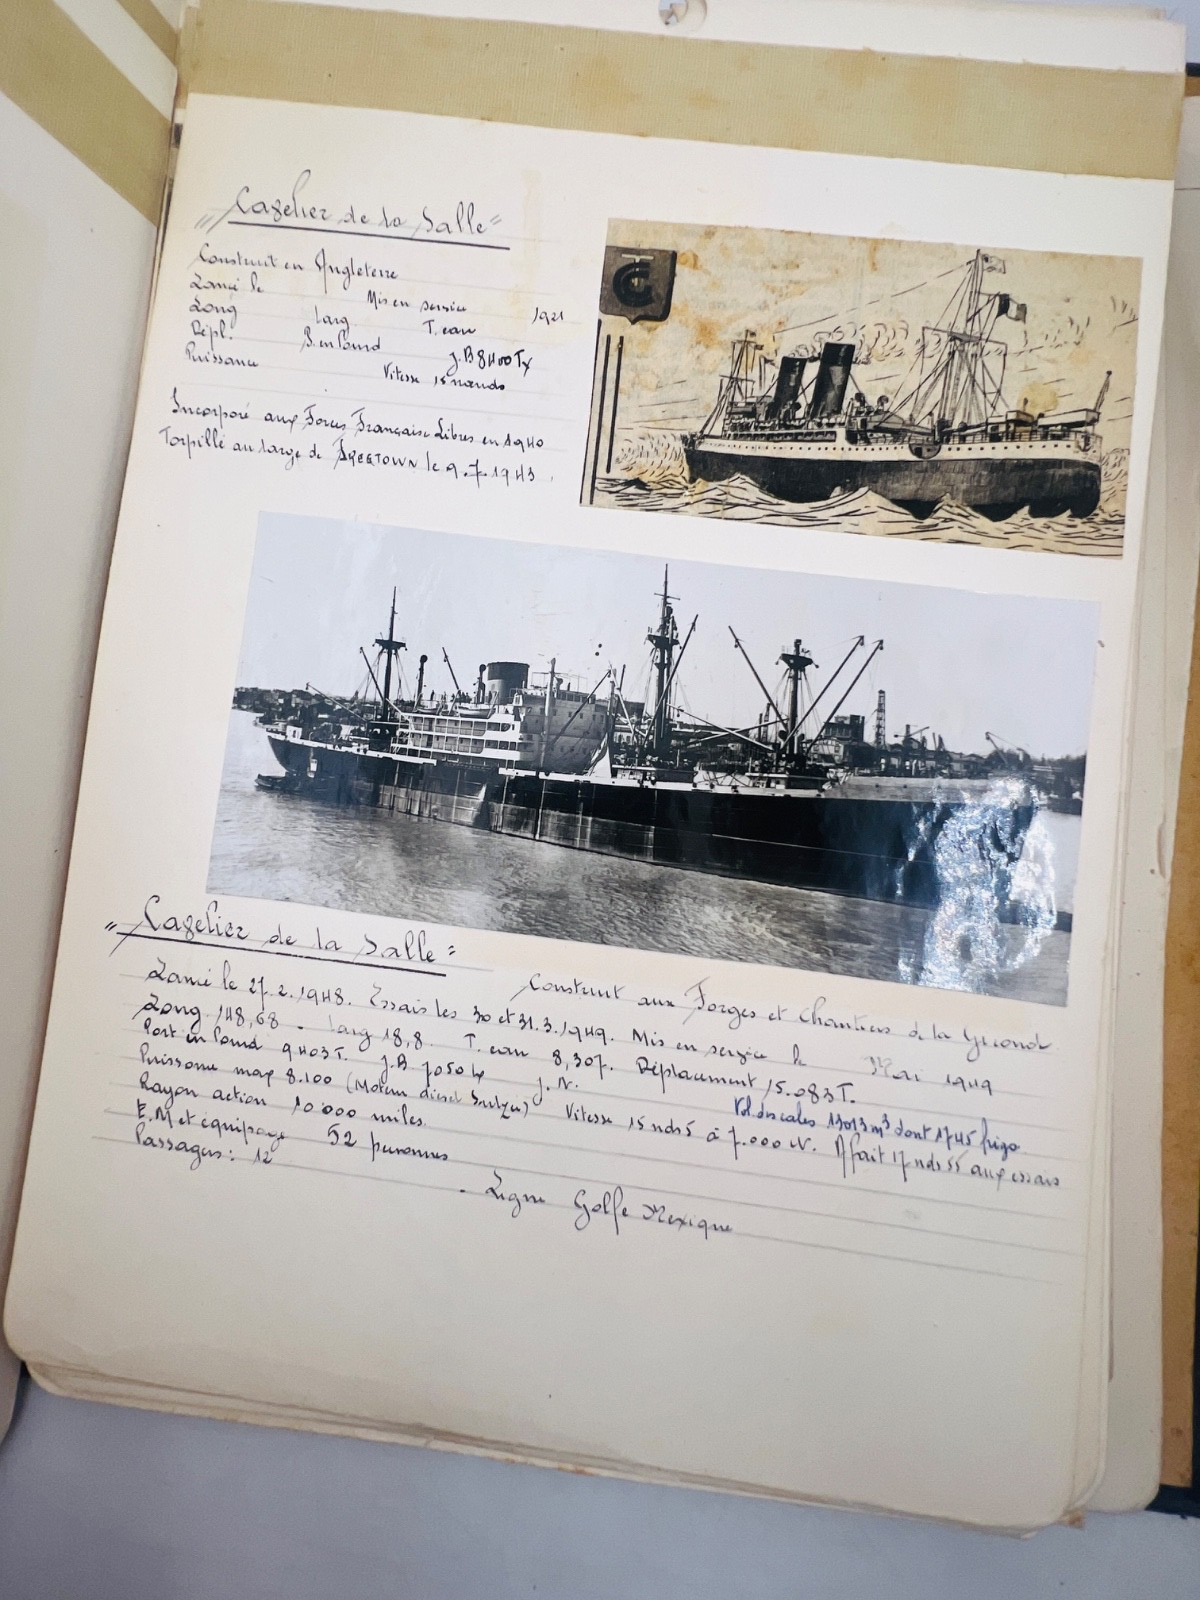 "Cavelier de la Salle"
Construit en Angleterre
Lancé le Mis en service 1921
Long larg T. eau
Dépl. P. en lourd J.B 8400 Tx
Puissance Vitesse 15 nœuds
Incorporé aux Forces Française Libres en 1940
Torpillé au large de FREETOWN le 9.7.1943.
"Cavelier de la Salle"
Construit aux Forges et Chantiers de la Gironde
Lancé le 27.2.1948. Essais les 30 et 31.3.1949. Mis en service le Mai 1949
Long 148,68 - larg 18,8. T. eau 8,307. Déplacement 15.083 T.
Port en lourd 9403 T. J.B 7050 tx J.N. Vol des cales 13013 m³ dont 1745 frigo
Puissance max 8.100 (Moteur diesel Sulzer) Vitesse 15 nds 5 à 7.000 CV. A fait 17 nds 55 aux essais
Rayon action 10 000 miles.
E.M et équipage 52 personnes
Passagers: 12
- Ligne Golfe Mexique